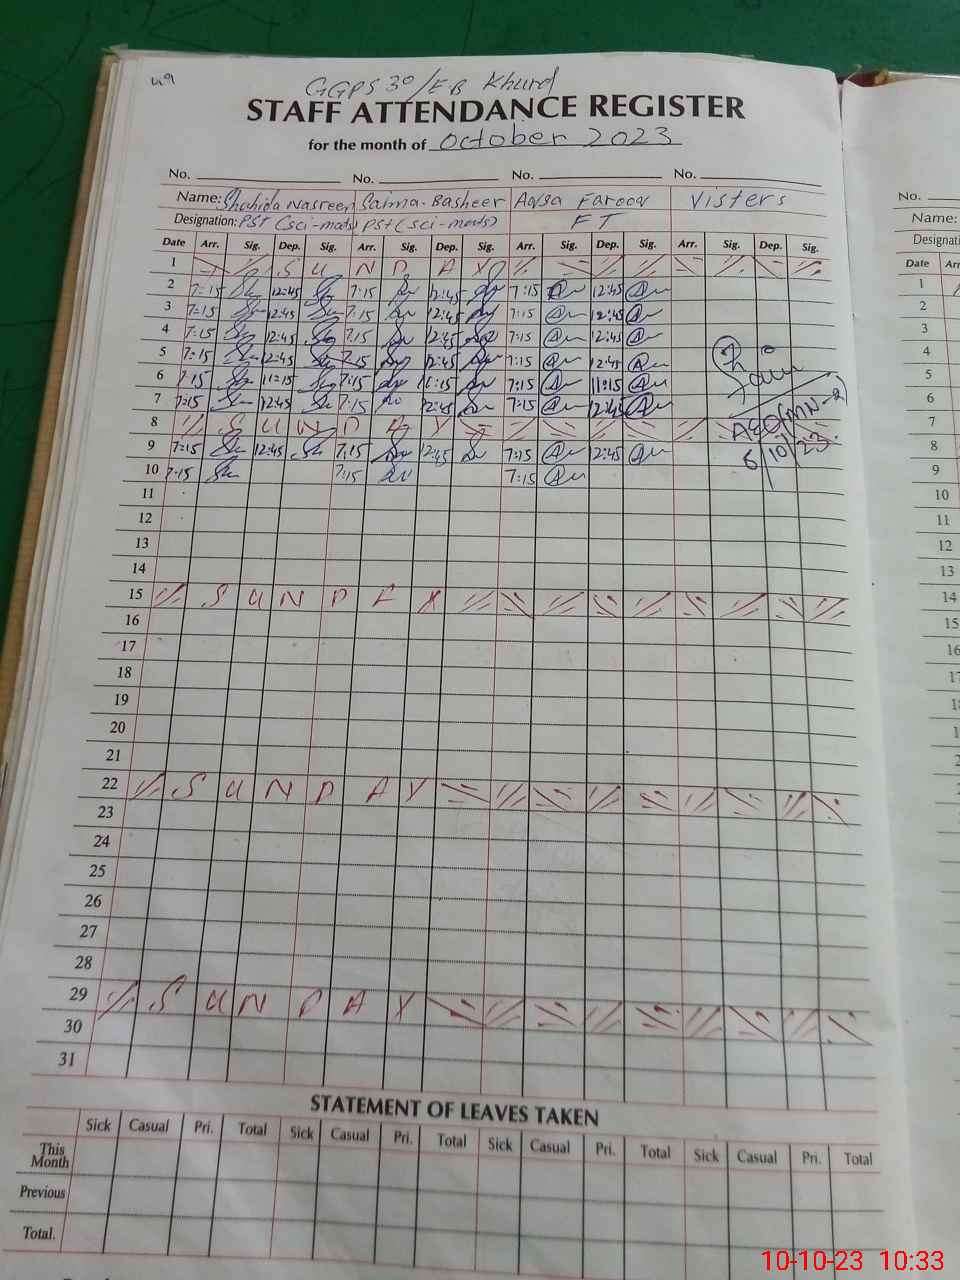 GGPS 30/EB Khurd
STAFF ATTENDANCE REGISTER
for the month of October 2023
No. No. No. No. No.
Name: Shahida Nasreen Saima Basheer Aqsa Farooq Visters Name:
Designation: PST (sci-math) PST (sci-math) FT
Date Arr. Sig. Dep. Sig. Arr. Sig. Dep. Sig. Arr. Sig. Dep. Sig. Arr. Sig. Dep. Sig. Date
1 S U N D A Y 1
2 7:15 12:45 7:15 12:45 7:15 12:45 2
3 7:15 12:45 7:15 12:45 7:15 12:45 3
4 7:15 12:45 7:15 12:45 7:15 12:45 4
5 7:15 12:45 7:15 12:45 7:15 12:45 5
6 7:15 11:15 7:15 11:15 7:15 11:15 6
7 7:15 12:45 7:15 12:45 7:15 12:45 7
8 S U N D A Y 8
9 7:15 12:45 7:15 12:45 7:15 12:45 9
10 7:15 7:15 7:15 10
AEO (MN-2)
6/10/23
11 11
12 12
13 13
14 14
15 S U N D A Y 15
16 16
17
18
19
20
21
22 S U N D A Y
23
24
25
26
27
28
29 S U N D A Y
30
31
STATEMENT OF LEAVES TAKEN
Sick Casual Pri. Total Sick Casual Pri. Total Sick Casual Pri. Total Sick Casual Pri. Total
This Month
Previous
Total.
10-10-23 10:33